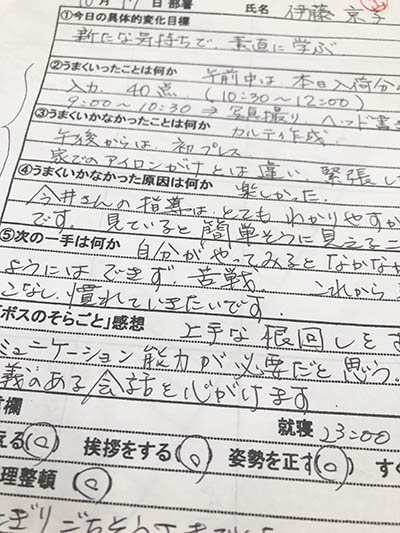 10月17日 部署 氏名 伊藤 京子
①今日の具体的変化目標
新たな気持ちで、素直に学ぶ
②うまくいったことは何か 午前中は、本日入荷分の
入力 40点 (10:30〜12:00)
9:00〜10:30 ⇒ 写真撮り ヘッド書き
③うまくいかなかったことは何か カルティ作成
午後からは、初プレス
家でのアイロンがけとは違い、緊張し
④うまくいかなかった原因は何か 楽しかった。
今井さんの指導は、とてもわかりやすか
です。見ていると簡単そうに見えるこ
⑤次の一手は何か 自分がやってみるとなかなか
ようにはできず、苦戦。 これから
こなし、慣れていきたいです。
「ボスのそらごと」感想 上手な根回しをす
ミュニケーション能力が必要だと思う。
義のある会話を心がけます
欄 就寝 23:00
える(○) 挨拶をする(○) 姿勢を正す(○) す
理整頓(○)